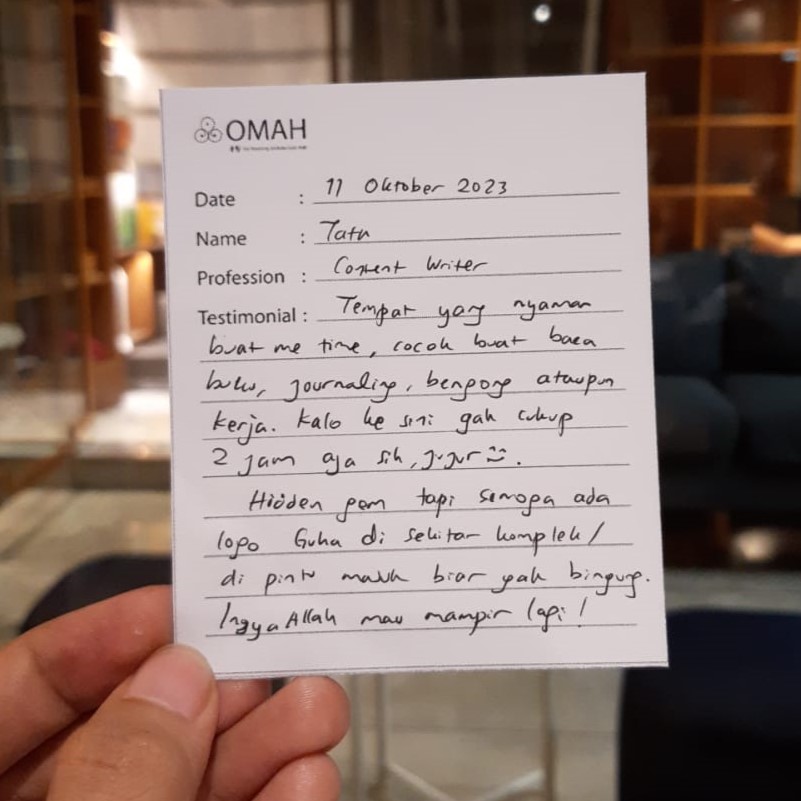 OMAH
Date : 11 Oktober 2023
Name : Tatu
Profession : Content Writer
Testimonial : Tempat yang nyaman
buat me time, cocok buat baca
buku, journaling, bengong ataupun
kerja. Kalo ke sini gak cukup
2 jam aja sih, jujur :).
Hidden gem tapi semoga ada
logo Guha di sekitar komplek /
di pintu masuk biar gak bingung.
InsyaAllah mau mampir lagi!